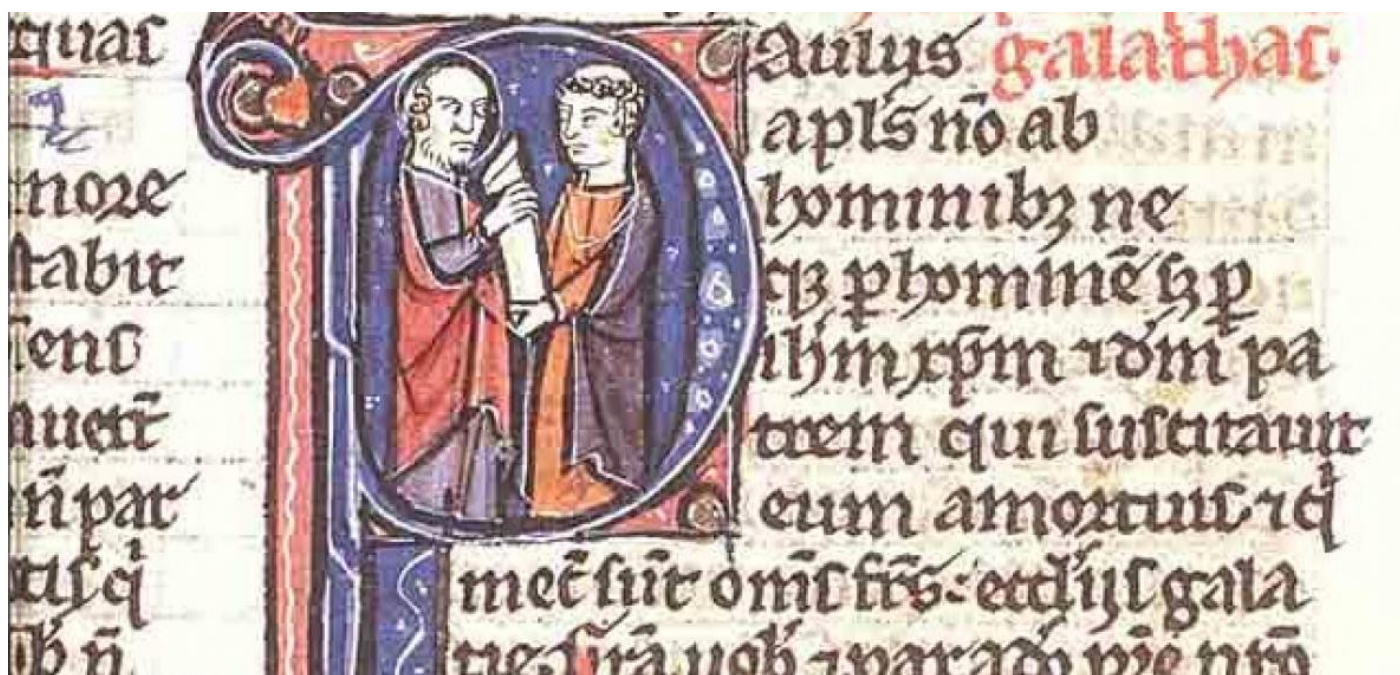 quas
nore
stabit
par
Paulus galathas.
apl̄s nō ab
hominibꝫ ne
qꝫ ꝑ hominē sꝫ ꝑ
ihm xp̄m ⁊ dm̄ pa
trem qui suscitauit
eum amortuis ⁊ qͥ
mec̄ sūt om̄s fr̄s: eccl̓ijs gala
tie. Grā uob̓ ⁊ pax a dō pr̄e nr̄o